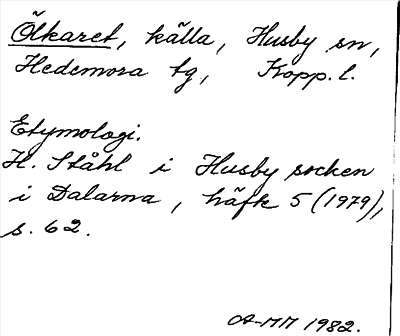 Ölkaret, källa, Husby sn,
Hedemora tg, Kopp. l.
Etymologi.
H. Ståhl i Husby socken
i Dalarna, häfte 5 (1979),
s. 62.
A-MM 1982.